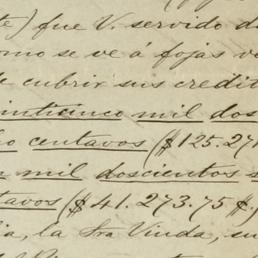 te) fue V. servido d
omo se ve á fojas v
e cubrir sus credit
inticinco mil dos
ho centavos ($125.271
n mil doscientos s
tavos ($41.273.75 ¢.
ia, la Sra Viuda, su